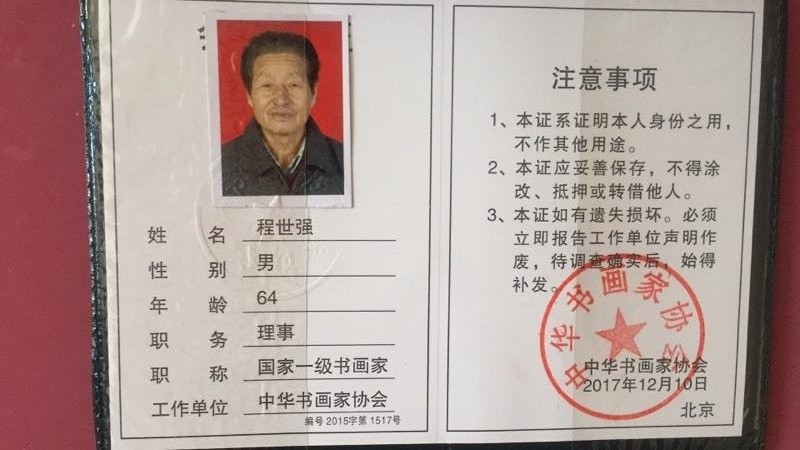 姓 名 程世强
性 别 男
年 龄 64
职 务 理事
职 称 国家一级书画家
工作单位 中华书画家协会
编号 2015字第 1517号
注意事项
1、本证系证明本人身份之用，
不作其他用途。
2、本证应妥善保存，不得涂
改、抵押或转借他人。
3、本证如有遗失损坏。必须
立即报告工作单位声明作
废，待调查确实后，始得
补发。
中华书画家协会
中华书画家协会
2017年12月10日
北京